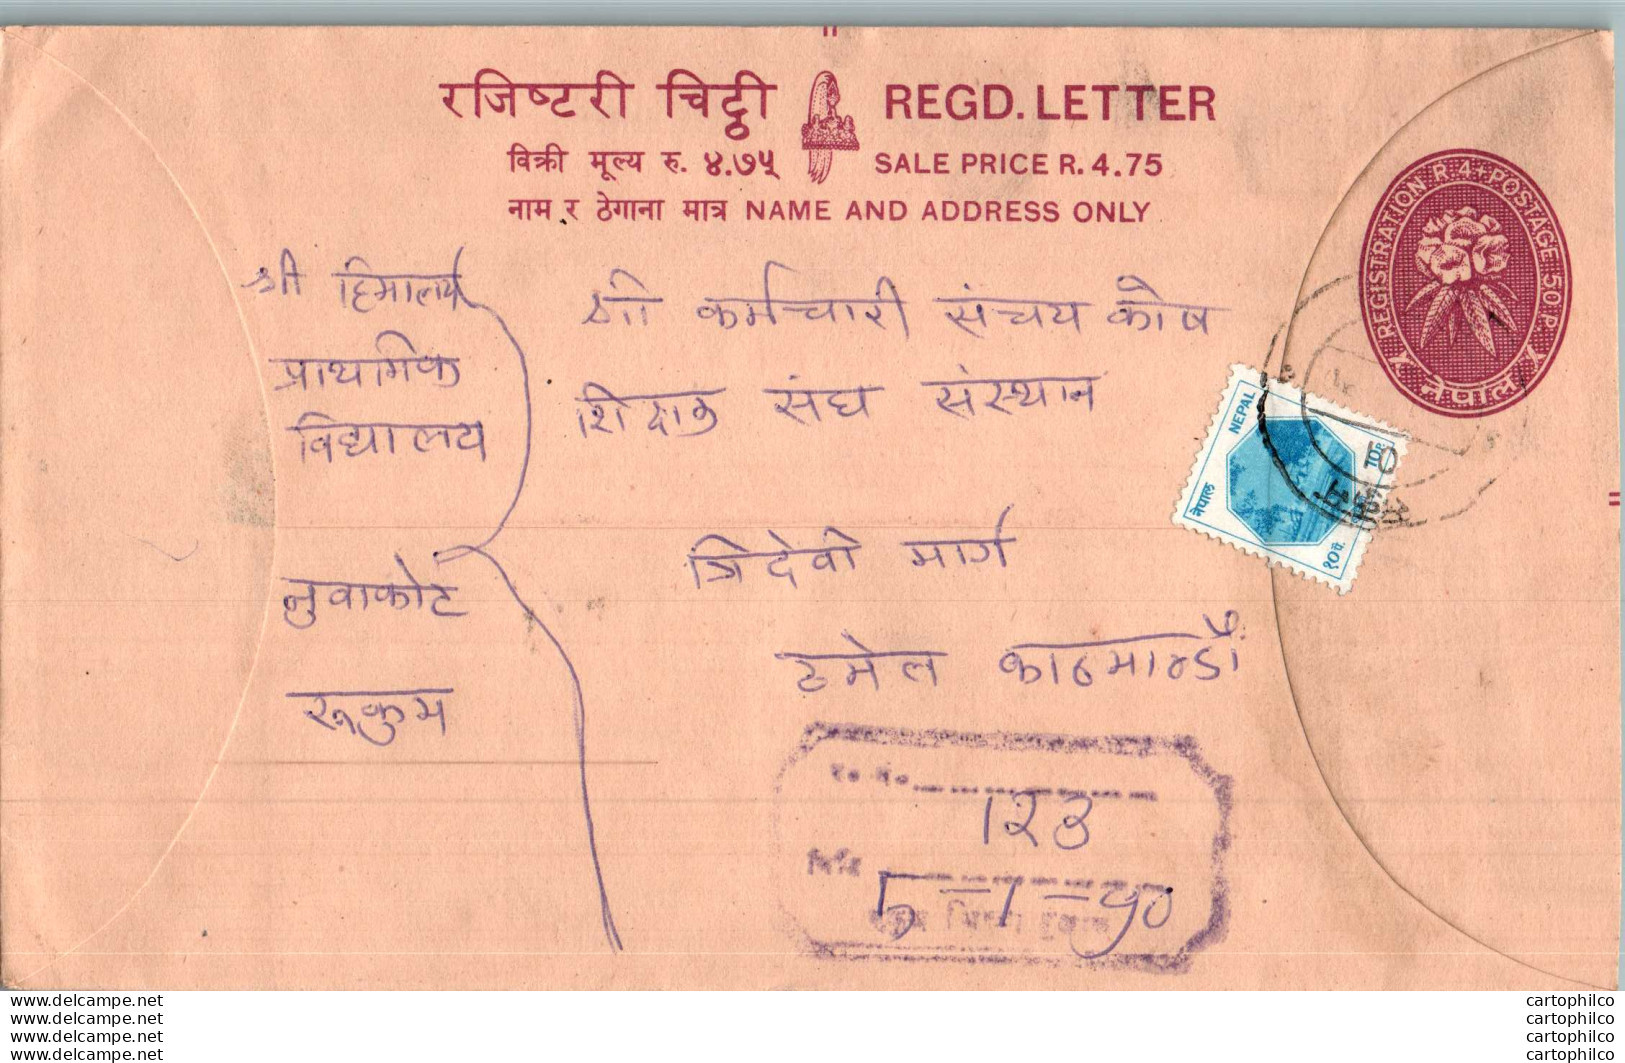 रजिष्टरी चिठ्ठी REGD. LETTER
विक्री मूल्य रु. ४.७५ SALE PRICE R. 4.75
नाम र ठेगाना मात्र NAME AND ADDRESS ONLY
REGISTRATION R.4+POSTAGE 50 P.
नेपाल
श्री हिमालय
प्राथमिक
विद्यालय
नुवाकोट
रूकुम
श्री कर्मचारी संचय कोष
शिक्षक संघ संस्थान
त्रिदेवी मार्ग
ठमेल काठमाण्डौं
NEPAL 10P.
नेपाल १०पै.
र. नं.
१२३
मिति
५०
www.delcampe.net cartophilco
www.delcampe.net cartophilco
www.delcampe.net cartophilco
www.delcampe.net cartophilco